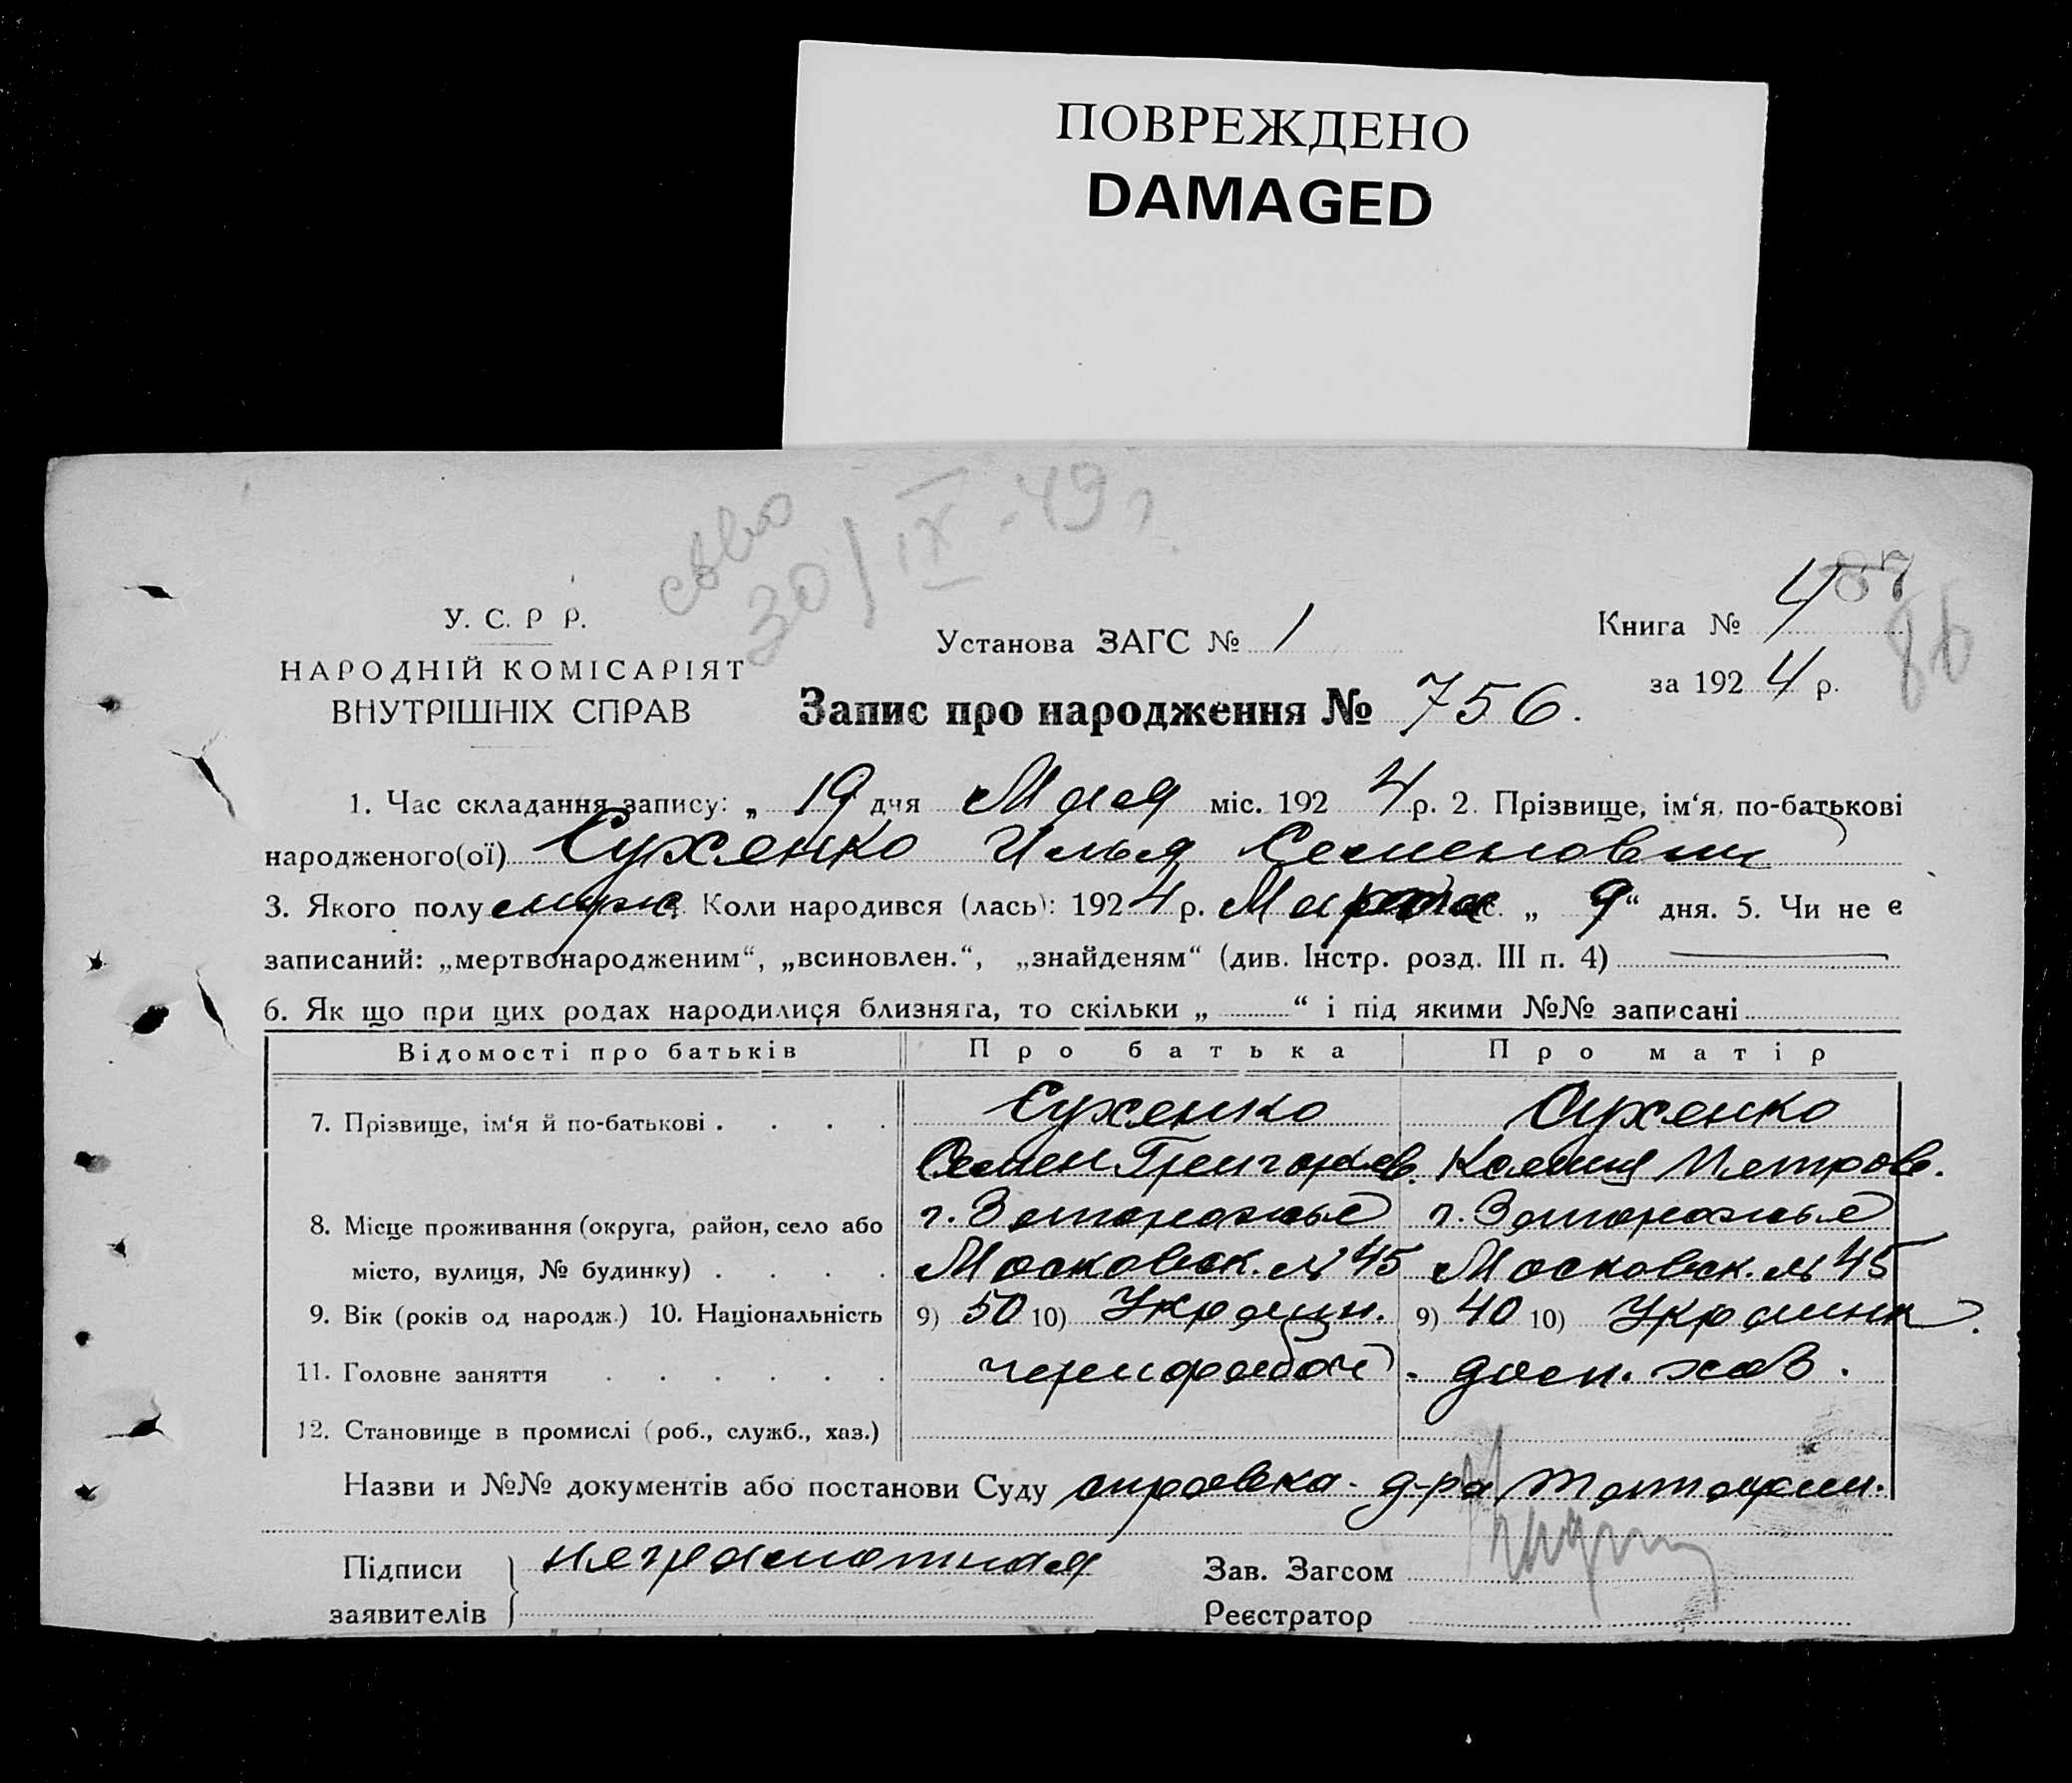 ПОВРЕЖДЕНО
DAMAGED
30/IX-49г.
87
86
У. С. Р Р.
Установа ЗАГС № 1
Книга № 4
НАРОДНІЙ КОМІСАРІЯТ
ВНУТРІШНІХ СПРАВ
за 1924 р.
Запис про народження № 756.
1. Час складання запису: „ 19 дня Мая міс. 1924 р. 2. Прізвище, ім‘я, по-батькові
народженого(ої) Сухенко Илья Семенович
3. Якого полу муж 4. Коли народився (лась): 1924 р. Марта міс. „ 9 “ дня. 5. Чи не є
записаний: „мертвонародженим“, „всиновлен.“, „знайденям“ (див. Інстр. розд. III п. 4)
6. Як що при цих родах народилися близняга, то скільки „ “ і під якими №№ записані
Відомості про батьків Про батька Про матір
7. Прізвище, ім‘я й по-батькові . . . . Сухенко Сухенко
Семен Григорьев. Ксения Петров.
8. Місце проживання (округа, район, село або г. Запорожье г. Запорожье
місто, вулиця, № будинку) . . . . Московск. № 45 Московск. № 45
9. Вік (років од народж.) 10. Національність 9) 50 10) Украин. 9) 40 10) Украинк.
11. Головне заняття . . . . . . чернорабоч. дом. хоз.
12. Становище в промислі (роб., служб., хаз.)
Назви и №№ документів або постанови Суду справка д-ра
Підписи неграмотная Зав. Загсом
заявителів Реєстратор